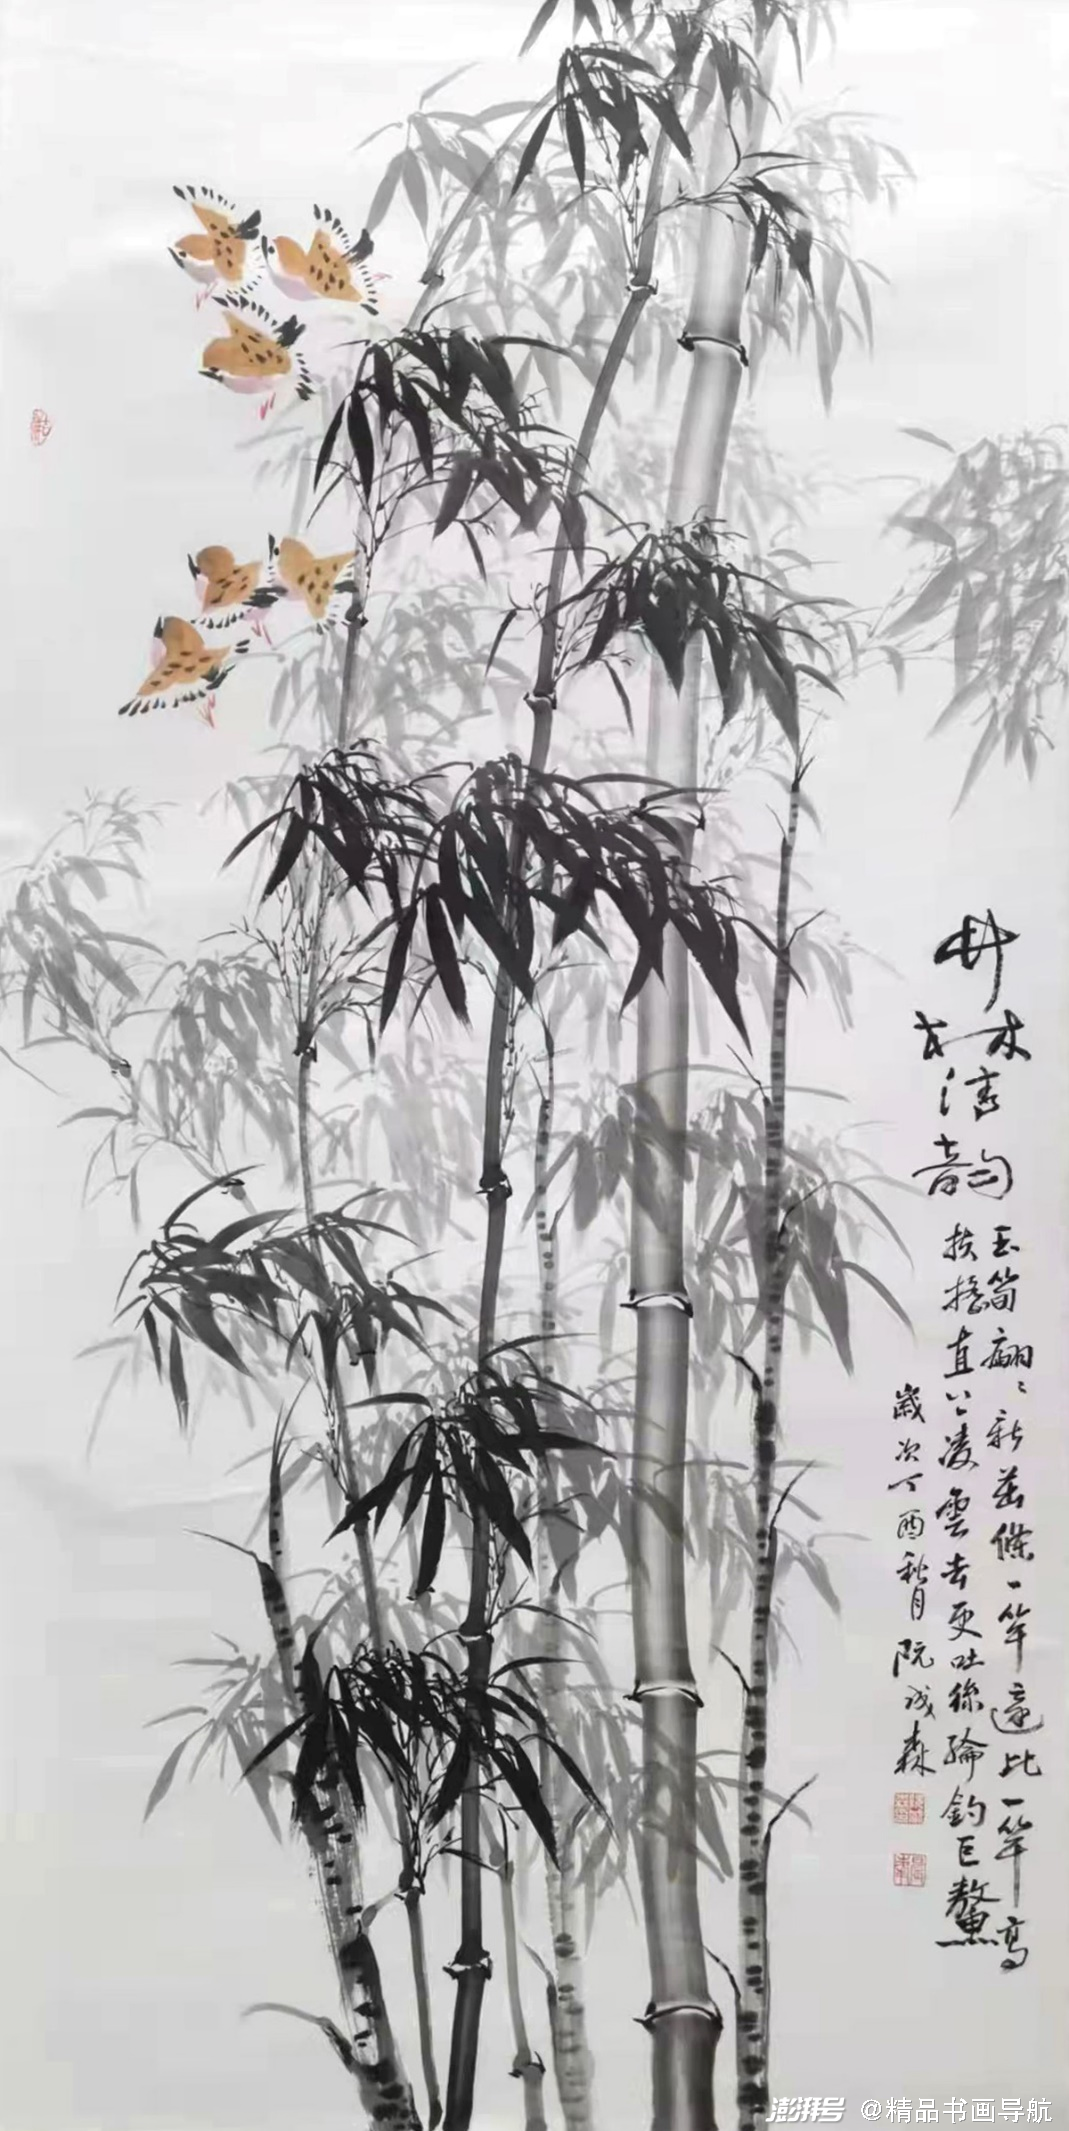 清韻
玉筒翩翩新茁條一竿還比一竿高
扶搖直上凌雲去更吐絲綸釣巨鰲
歲次丁酉秋月阮成森
澎湃号 @精品书画导航